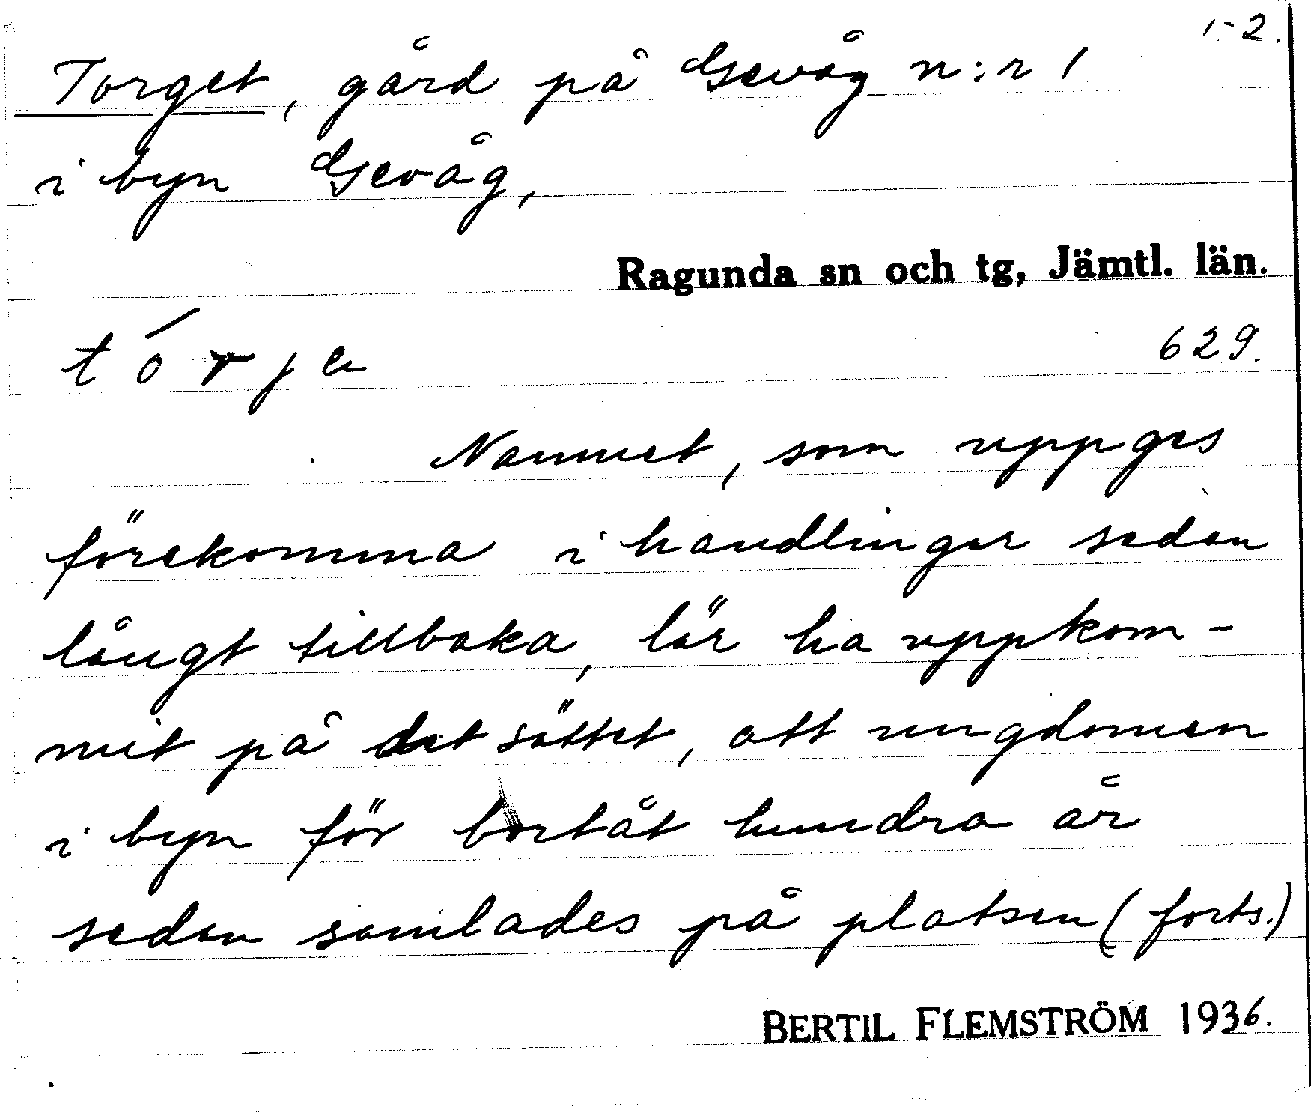 1-2.
Torget, gård på Gevåg n:r 1
i byn Gevåg,
Ragunda sn och tg, Jämtl. län.
tórje
629.
Namnet, som uppges
förekomma i handlingar sedan
långt tillbaka, lär ha uppkom-
mit på det sättet, att ungdomen
i byn för bortåt hundra år
sedan samlades på platsen (forts.)
BERTIL FLEMSTRÖM 1936.